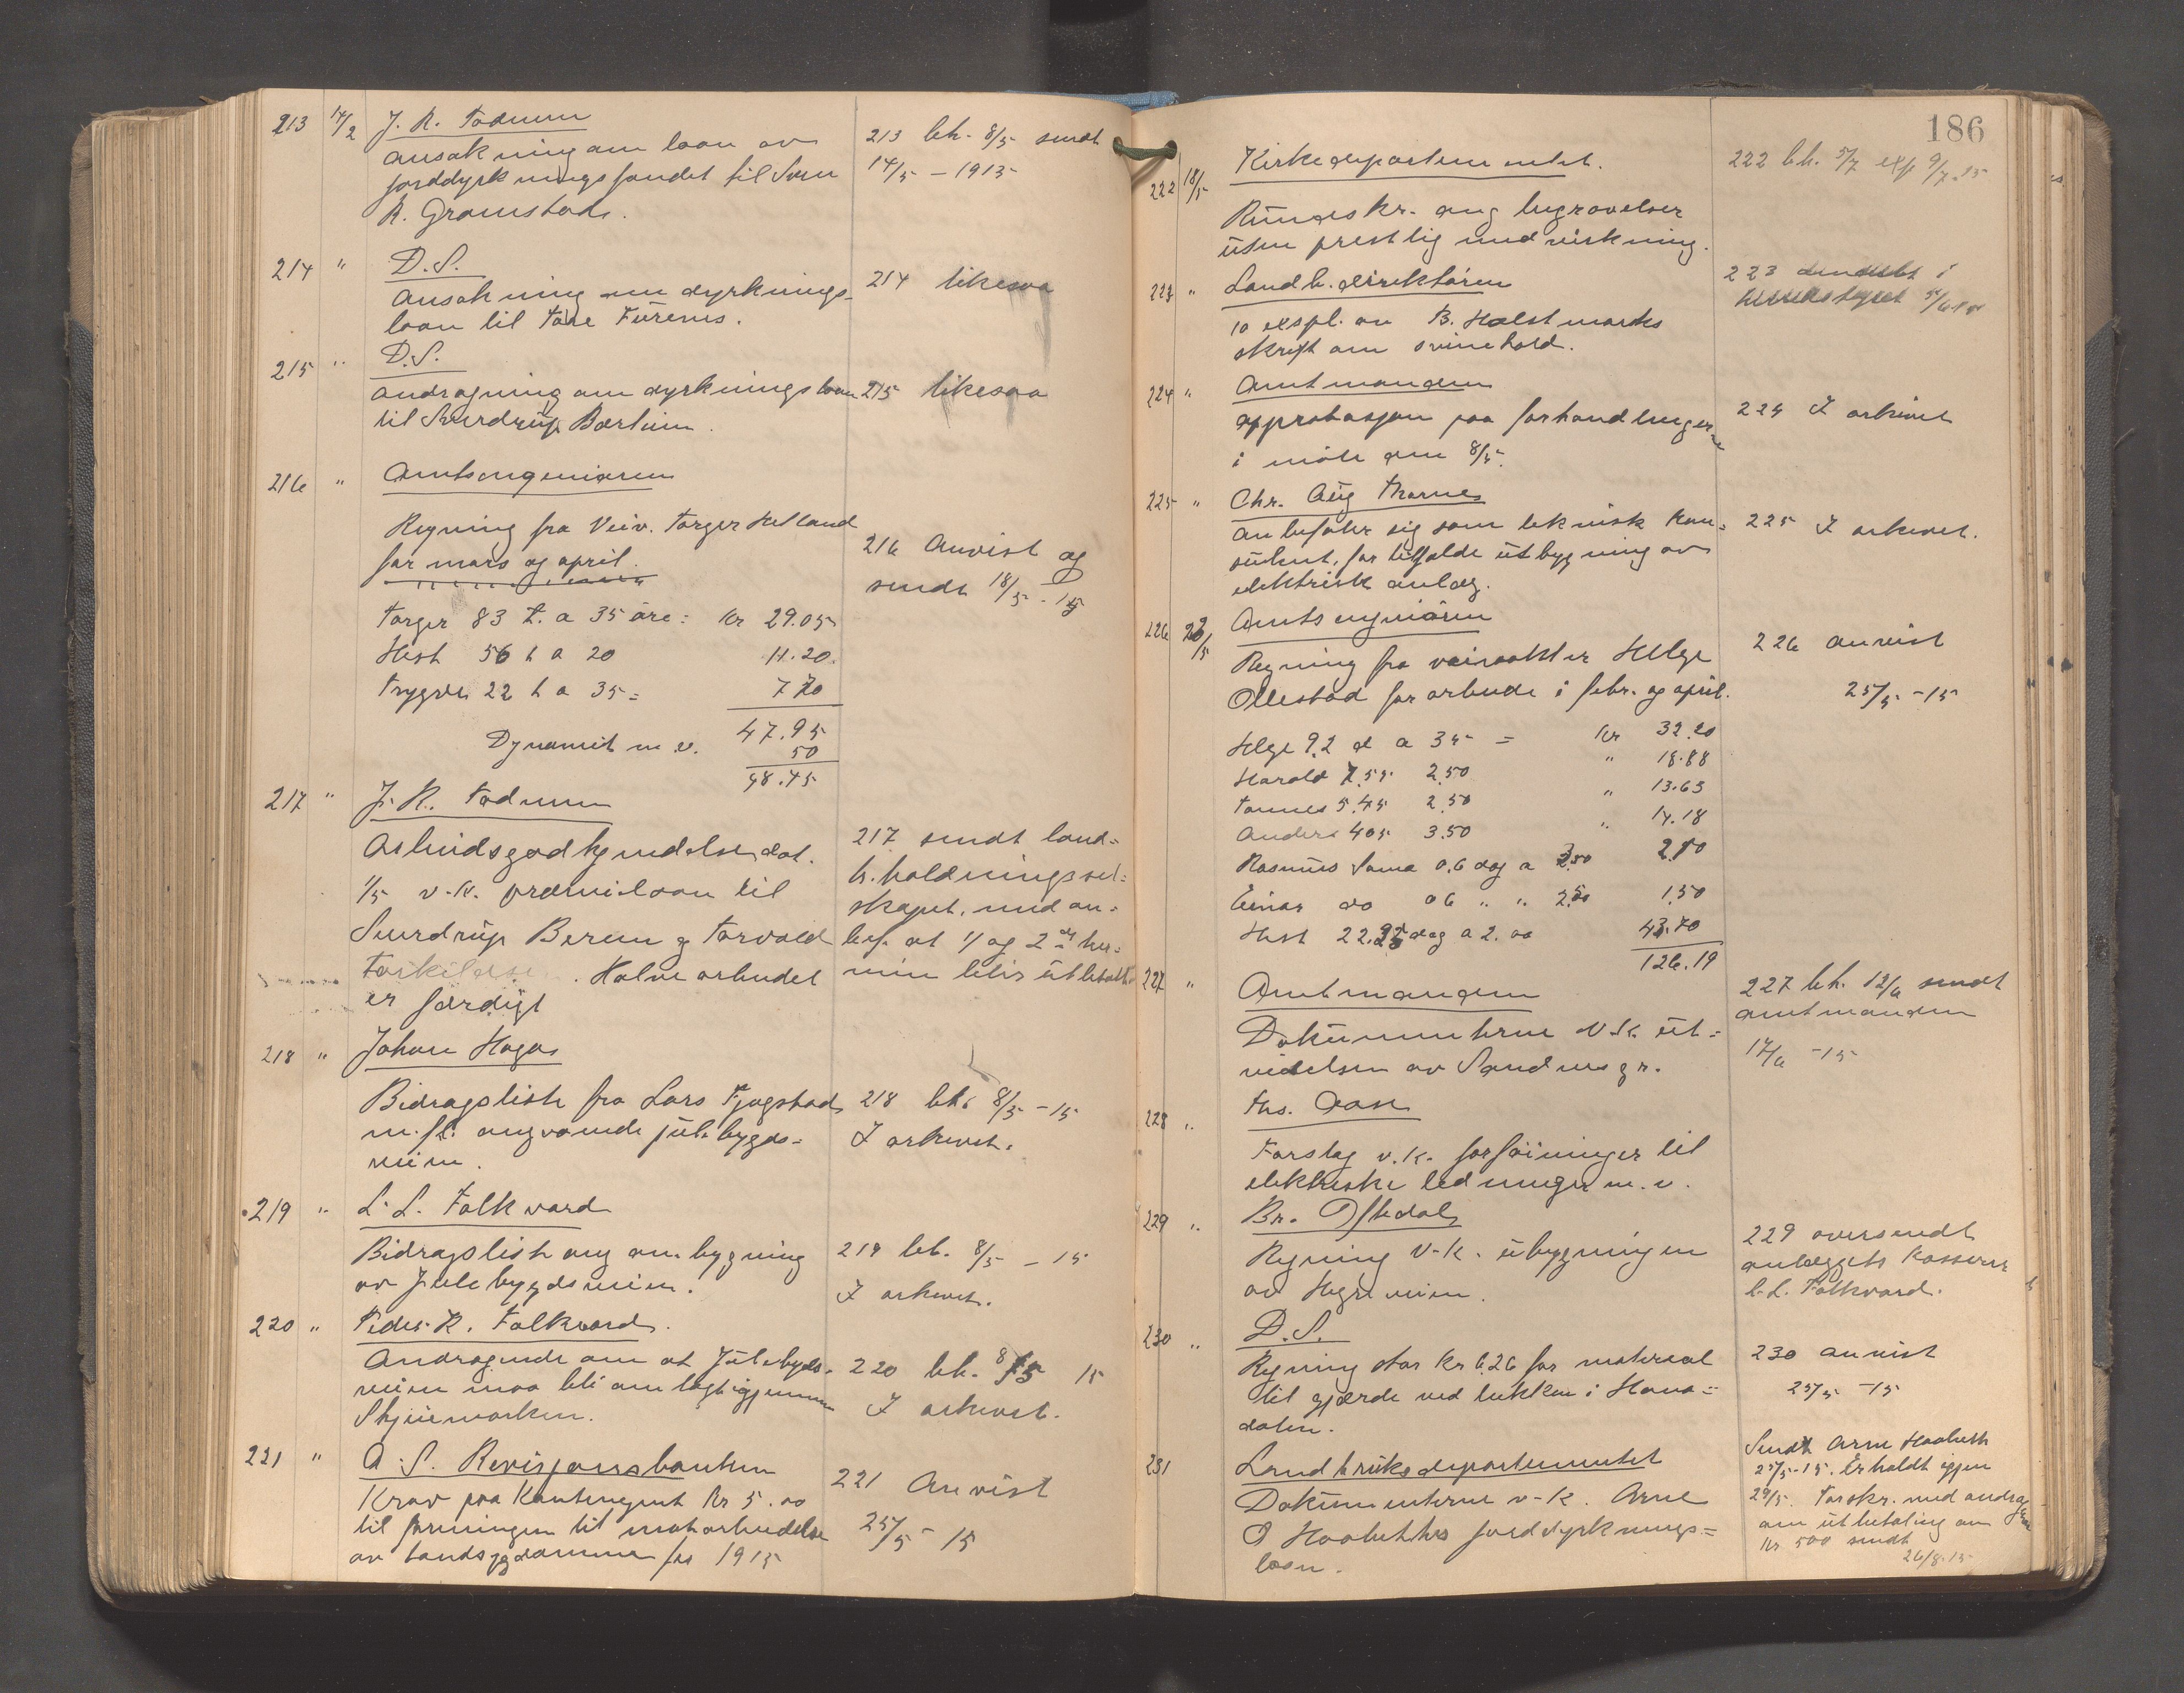 213 14/2 J. R. Todnem
ansøkning om laan av
jorddyrkningsfondet til Sven
R. Gramstad.
213 beh. 8/5 sendt
14/5 - 1915
214 " D.S.
ansøkning om dyrknings-
laan til Tore Furenes.
214 likesaa
215 " D.S.
andragning om dyrkningslaan
til Sverdrup Bærheim.
215 likesaa
216 " Amtsingeniøren
Regning fra Veiv. Torger Helland
for mars og april.
Torger 83 t. a 35 øre: kr 29.05
Hest 56 t a 20 11.20
Trygve 22 t a 35 = 7 70
47.95
Dynamit m.v. 50
48.45
216 Anvist og
sendt 18/5 - 15
217 " J. R. Todnem
Arbeidsgodkjendelse dat.
1/5 v-k. præmielaan til
Sverdrup Berem g Torvald
Torkildsen. Halve arbeidet
er færdigt
217 sendt land=
h.holdningssel=
skapet, med an=
bef. at 1/ og 2de ter=
min blir utbetalt.
218 " Johan Hagas
Bidragsliste fra Lars Fjogstad
m.fl. angaaende Julebygds-
veien.
218 beh. 8/5 - 15
I arkivet.
219 " L. L. Folkvord
Bidragsliste ang ombygning
av Julebygdsveien.
219 beh. 8/5 - 15
I arkivet.
220 " Peder R. Folkvord.
Andragende om at Julebygds-
veien maa bli omlagt igjennem
Skjævemarken.
220 beh. 8/5 15
I arkivet.
221 " A.S. Revisjonsbanken
Krav paa Kontingent Kr 5.00
til foreningen til motarbeidelse
av landsygdommer for 1915
221 Anvist
25/5 - 15
186
222 18/5 Kirkedepartementet.
Rundskr. ang begravelser
uten prestlig medvirkning.
222 beh. 5/7 exp 9/7.15
223 " Landb. direktøren
10 expl. av B. Holstmarks
skrift om svinehold.
223
224 " Amtmanden
approbasjon paa forhandlingerne
i møte den 8/5.
224 I arkivet
225 " Chr. Aug Thornes
anbefaler sig som teknisk kon=
sulent, for tilfælde utbygning av
elektrisk anlæg.
225 I arkivet.
226 22/5 Amtsingeniøren
Regning fra veivokter Helge
Ollestad for arbeide i febr. og april.
Helge 9.2 d a 35 = kr 32.20
Harald 7.55 2.50 " 18.88
Tønnes 5.45 2.50 " 13.63
Anders 405 3.50 " 14.18
Rasmus Soma 0.6 dag a 3.50 2.10
Einar do 06 " " 2.50 1.50
Hest 22. dag a 2.00 43.70
126.19
226 anvist
25/5 - 15
227 " Amtmanden
Dokumenterne v-k. ut=
videlsen av Sandnes gr.
227 beh. 12/6 sendt
amtmanden
14/6 - 15
228 " Ths. Aase
Forslag v.k. forføininger til
elektriske ledninger m.v.
229 " Br. Oftedal
Regning v-k. ubygningen
av Hegreveien.
229 oversendt
anlæggets kasserer
L.L. Folkvord.
230 " D.S.
Regning stor Kr 6.26 for material
til gjærde ved lukken i Hana=
dalen.
230 anvist
25/5 - 15
231 Landbruksdepartementet
Dokumenterne v-k. Arne
O Haabeths jorddyrknings=
laan.
Sendt Arne Haabeth
25/5-15. Erholdt igjen
29/5. Forskr. med andrag
om utbetaling av
Kr 500 sendt
26/8.15